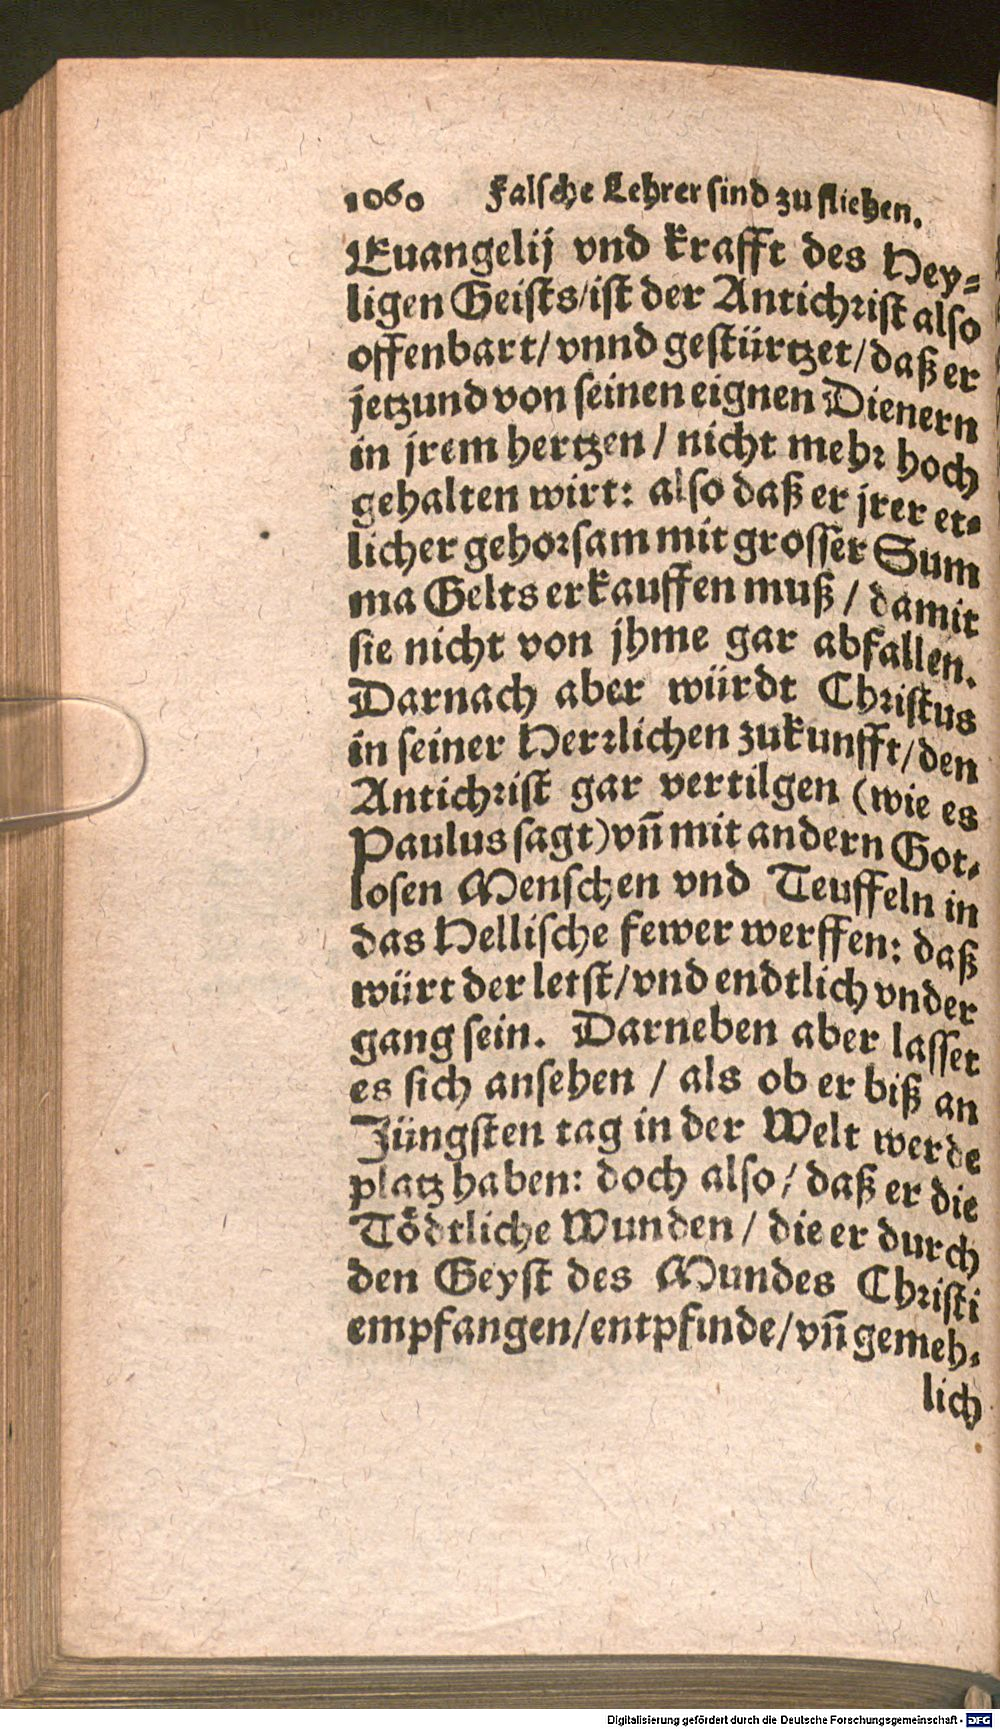 1060 Falsche Lehrer sind zu fliehen.
Euangelij vnd krafft des Hey-
ligen Geists/ist der Antichrist also
offenbart/vnnd gestürtzet/daß er
jetzund von seinen eignen Dienern
in jrem hertzen / nicht mehr hoch
gehalten wirt: also daß er jrer et-
licher gehorsam mit grosser Sum
ma Gelts erkauffen muß / damit
sie nicht von jhme gar abfallen.
Darnach aber würdt Christus
in seiner Herrlichen zukunfft/den
Antichrist gar vertilgen (wie es
Paulus sagt)vñ mit andern Got-
losen Menschen vnd Teuffeln in
das Hellische fewer werffen: daß
würt der letst/vnd endtlich vnder
gang sein. Darneben aber lasset
es sich ansehen / als ob er biß an
Jüngsten tag in der Welt werde
platz haben: doch also/ daß er die
Tödtliche Wunden / die er durch
den Geyst des Mundes Christi
empfangen/entpfinde/vñ gemeh-
lich
Digitalisierung gefördert durch die Deutsche Forschungsgemeinschaft - DFG